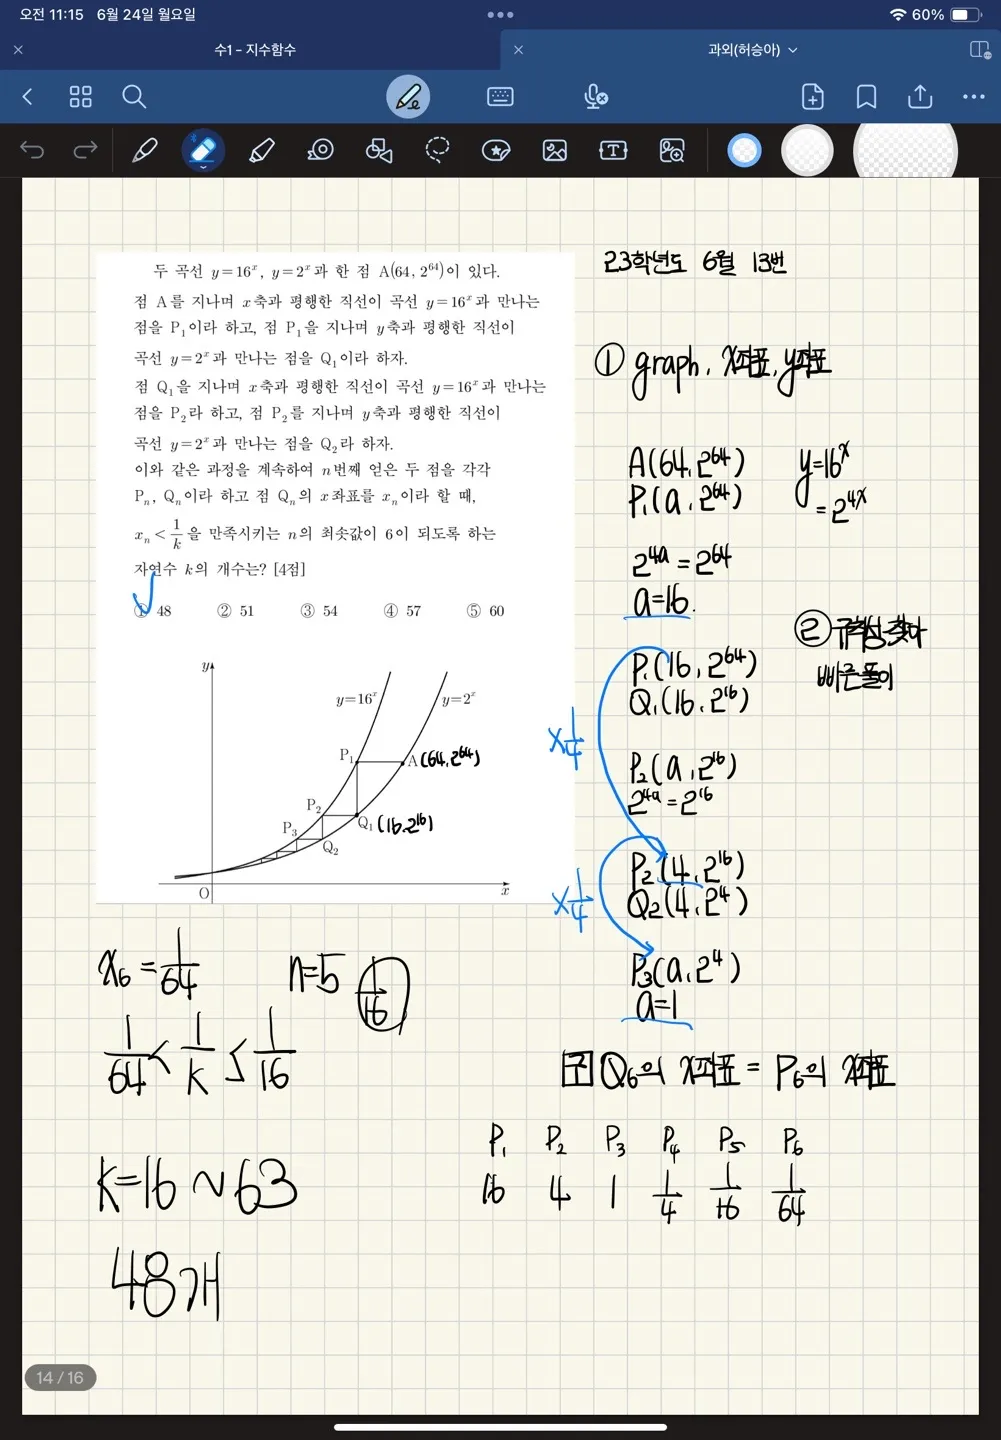 오전 11:15 6월 24일 월요일
60%
수1 - 지수함수
과외(허승아)
23학년도 6월 13번
두 곡선 y=16ˣ, y=2ˣ과 한 점 A(64, 2⁶⁴)이 있다.
점 A를 지나며 x축과 평행한 직선이 곡선 y=16ˣ과 만나는
점을 P₁이라 하고, 점 P₁을 지나며 y축과 평행한 직선이
곡선 y=2ˣ과 만나는 점을 Q₁이라 하자.
점 Q₁을 지나며 x축과 평행한 직선이 곡선 y=16ˣ과 만나는
점을 P₂라 하고, 점 P₂를 지나며 y축과 평행한 직선이
곡선 y=2ˣ과 만나는 점을 Q₂라 하자.
이와 같은 과정을 계속하여 n번째 얻은 두 점을 각각
Pₙ, Qₙ이라 하고 점 Qₙ의 x좌표를 xₙ이라 할 때,
xₙ < 1/k 을 만족시키는 n의 최솟값이 6이 되도록 하는
자연수 k의 개수는? [4점]
① 48 ② 51 ③ 54 ④ 57 ⑤ 60
y
y=16ˣ
y=2ˣ
P₁
A (64, 2⁶⁴)
P₂
Q₁ (16, 2¹⁶)
P₃
Q₂
O
x
① graph, x좌표, y좌표
A(64, 2⁶⁴)
P₁(a, 2⁶⁴)
y=16ˣ
=2⁴ˣ
2⁴ᵃ = 2⁶⁴
a=16.
② 규칙성 찾다
빠른풀이
P₁(16, 2⁶⁴)
Q₁(16, 2¹⁶)
×1/4
P₂(a, 2¹⁶)
2⁴ᵃ = 2¹⁶
P₂(4, 2¹⁶)
Q₂(4, 2⁴)
×1/4
P₃(a, 2⁴)
a=1
구 Q₆의 x좌표 = P₆의 x좌표
P₁ P₂ P₃ P₄ P₅ P₆
16 4 1 1/4 1/16 1/64
x₆ = 1/64 n=5 1/16
1/64 < 1/k ≤ 1/16
k=16 ~ 63
48개
14 / 16